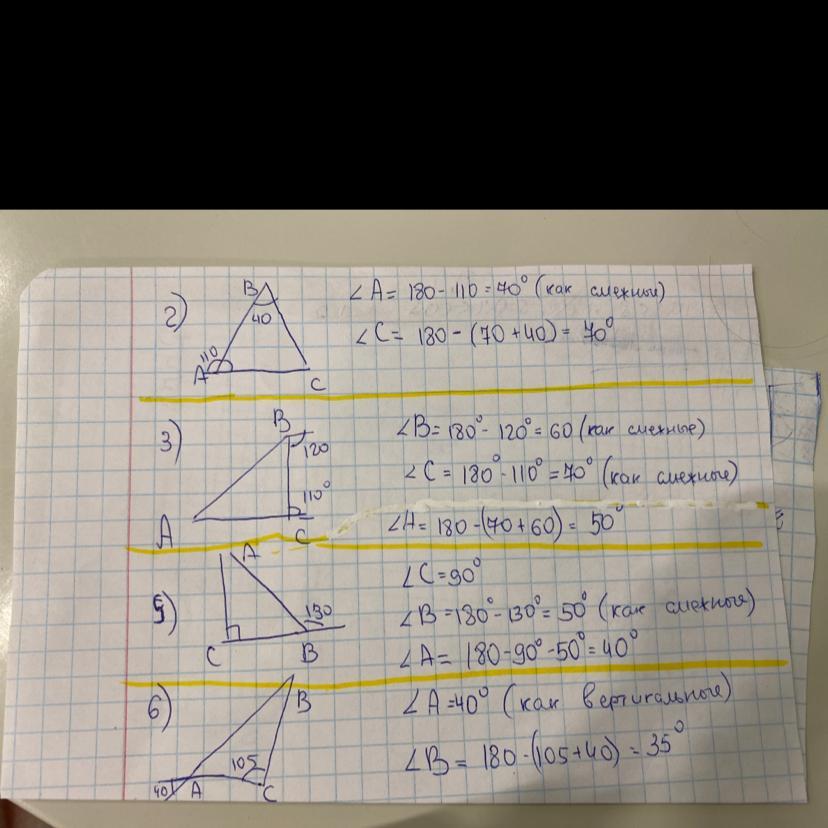 2)
B
40
110
A
C
∠A= 180-110=70° (как смежные)
∠C= 180-(70+40)= 70°
3)
B
120
110°
A
C
∠B=180°-120°=60 (как смежные)
∠C=180°-110°=70° (как смежные)
∠A=180-(70+60)= 50°
5)
A
130
C
B
∠C=90°
∠B=180°-130°=50° (как смежные)
∠A= 180-90°-50°=40°
6)
B
105
40
A
C
∠A=40° (как вертикальные)
∠B= 180-(105+40)=35°